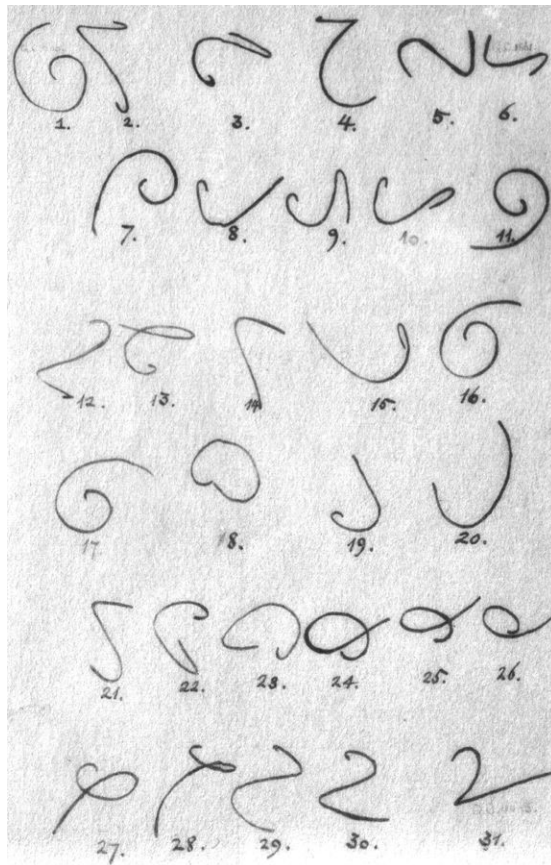 1. 2. 3. 4. 5. 6.
7. 8. 9. 10. 11.
12. 13. 14. 15. 16.
17. 18. 19. 20.
21. 22. 23. 24. 25. 26.
27. 28. 29. 30. 31.